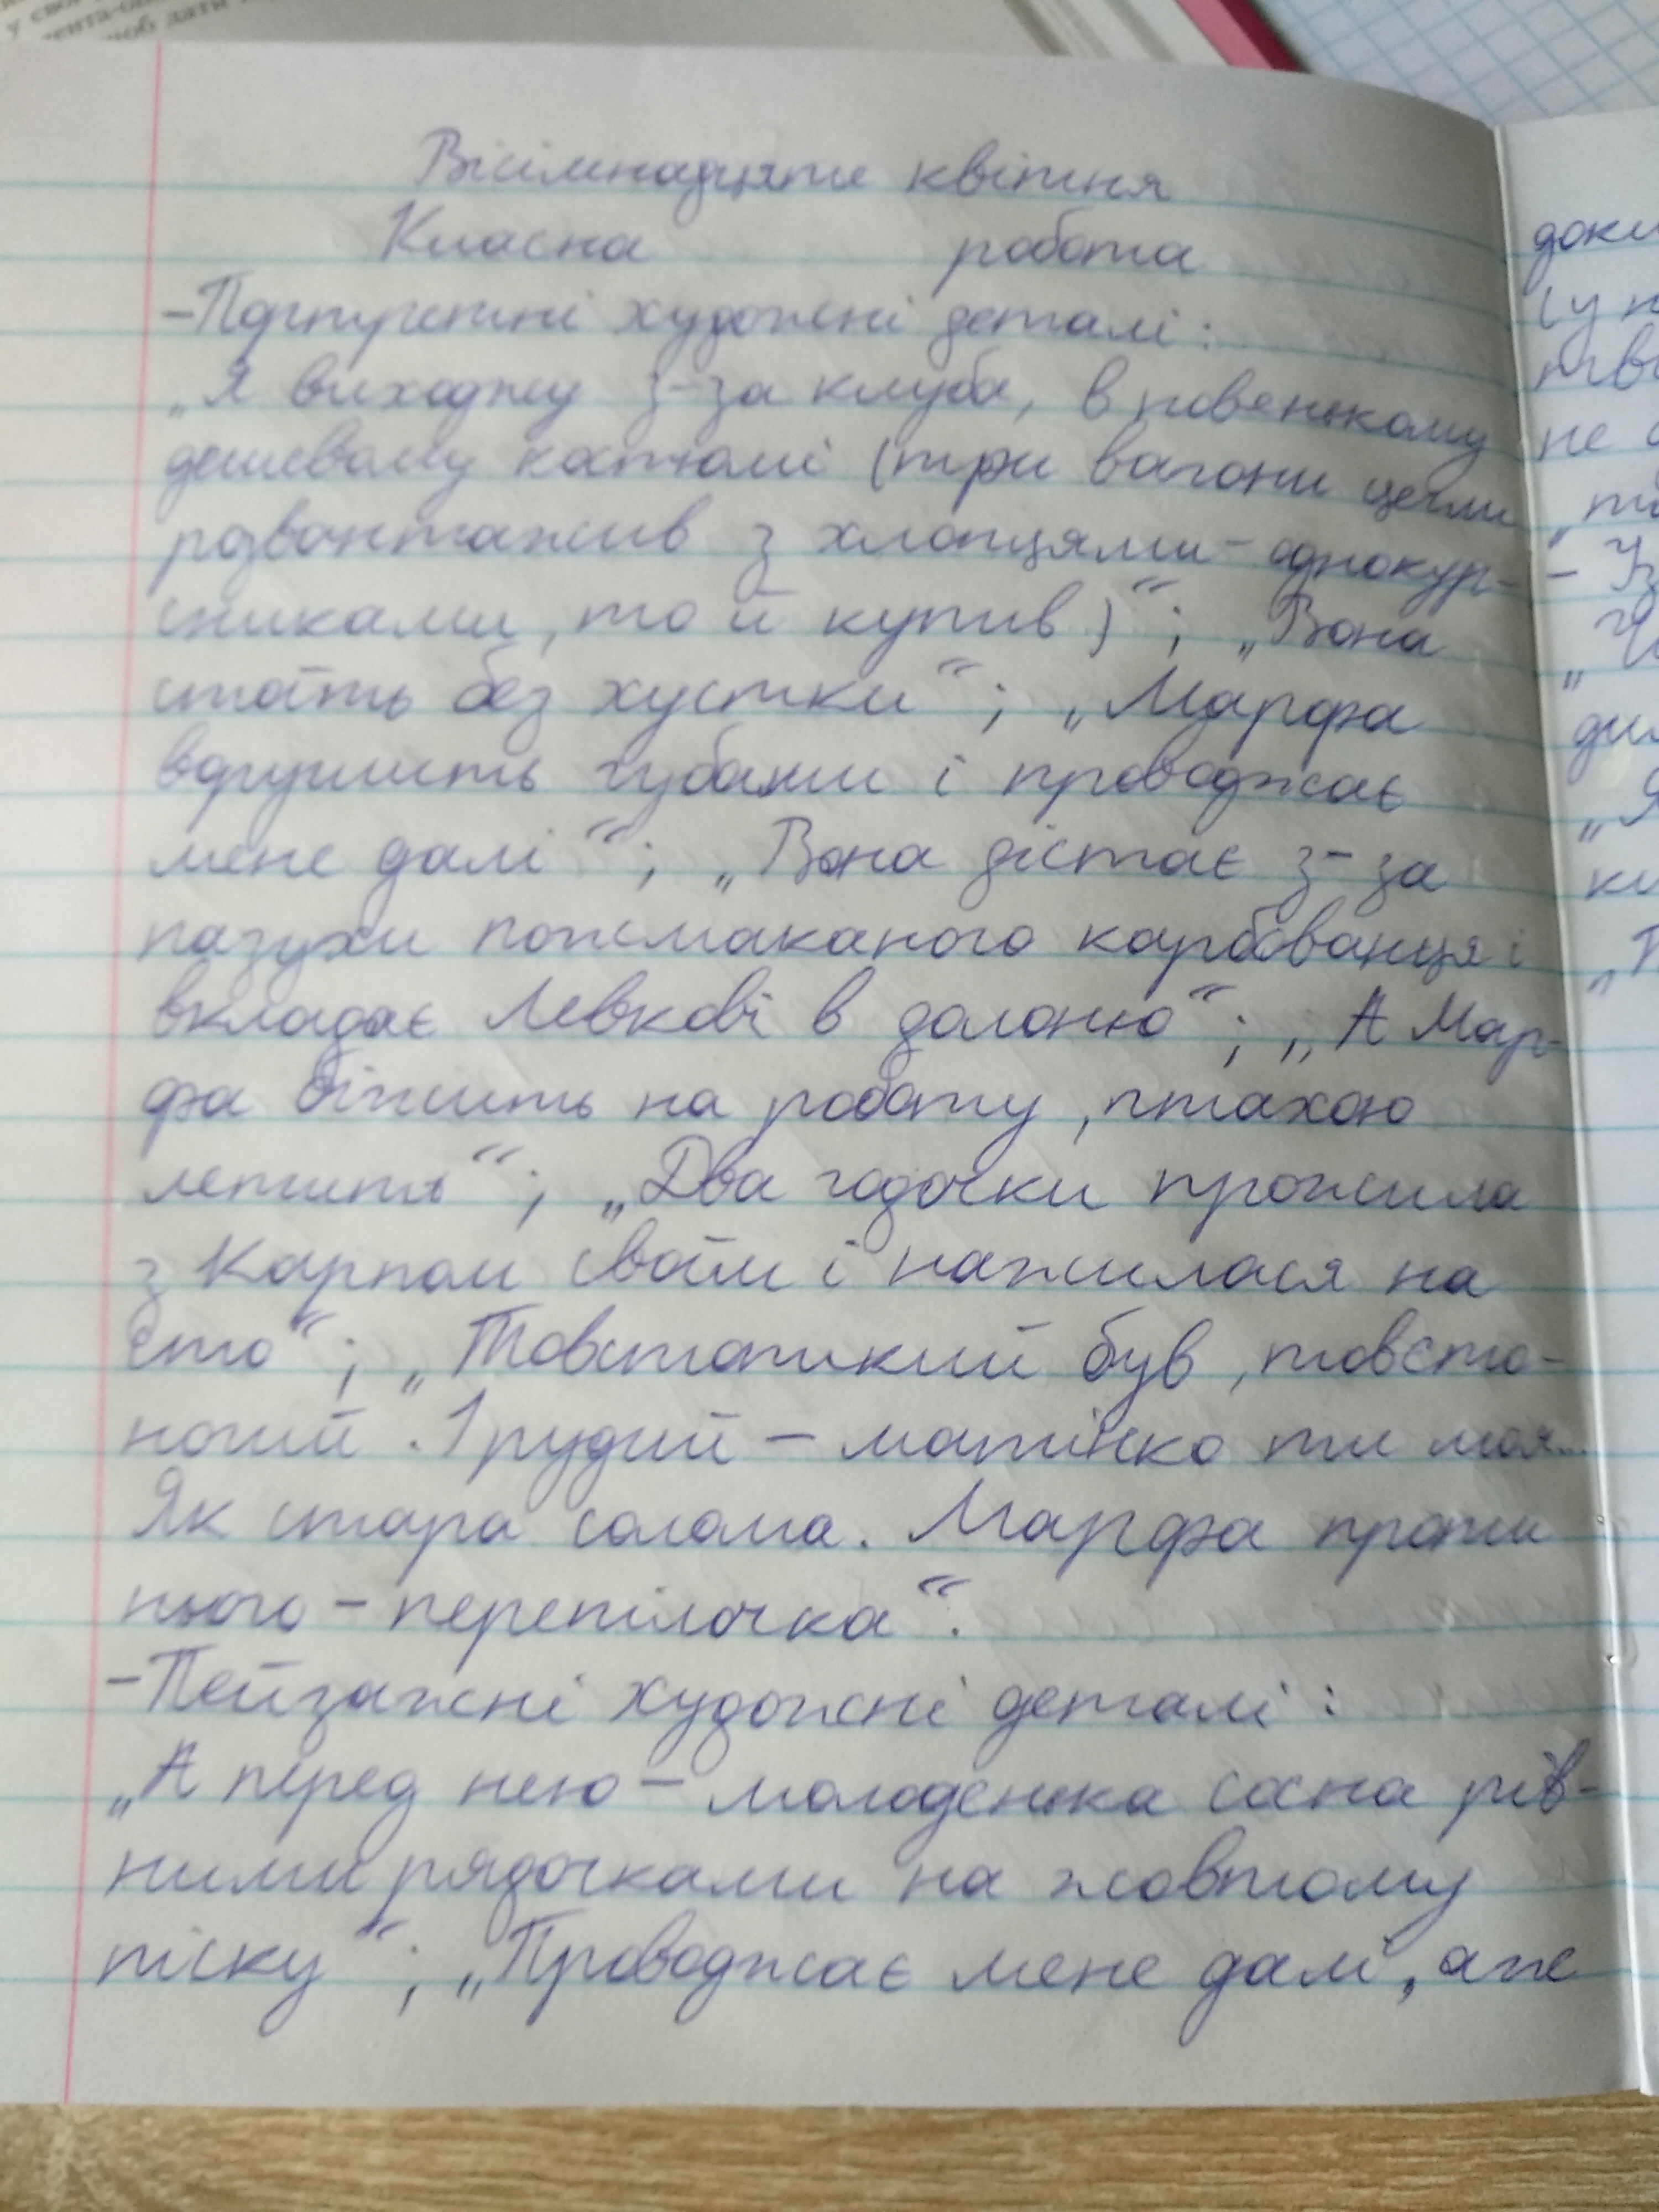 Вісімнадцяте квітня
Класна робота
-Портретні художні деталі:
„Я виходжу з-за клуба, в новенькому
дешевому костюмі (три вагони цегли
розвантажив з хлопцями-однокур-
сниками, то й купив)“; „Вона
стоїть без хустки“; „Марфа
ворушить губами і проводжає
мене далі“; „Вона дістає з-за
пазухи пожмаканого карбованця і
вкладає Левкові в долоню“; „А Мар-
фа біжить на роботу, птахою
летить“; „Два годочки прожила
з Карпом своїм і нажилася на
сто“; „Товстопикий був, товсто-
ногий. І рудий - матінко ти моя...
Як стара солома. Марфа проти
нього - перепілочка“.
-Пейзажні художні деталі:
„А перед нею - молоденька сосна рів-
ними рядочками на жовтому
піску“; „Проводжає мене далі, аже